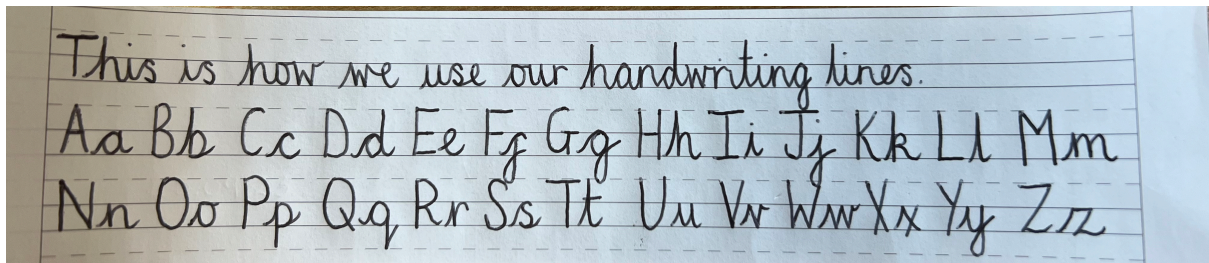 This is how we use our handwriting lines.
Aa Bb Cc Dd Ee Ff Gg Hh Ii Jj Kk Ll Mm
Nn Oo Pp Qq Rr Ss Tt Uu Vv Ww Xx Yy Zz